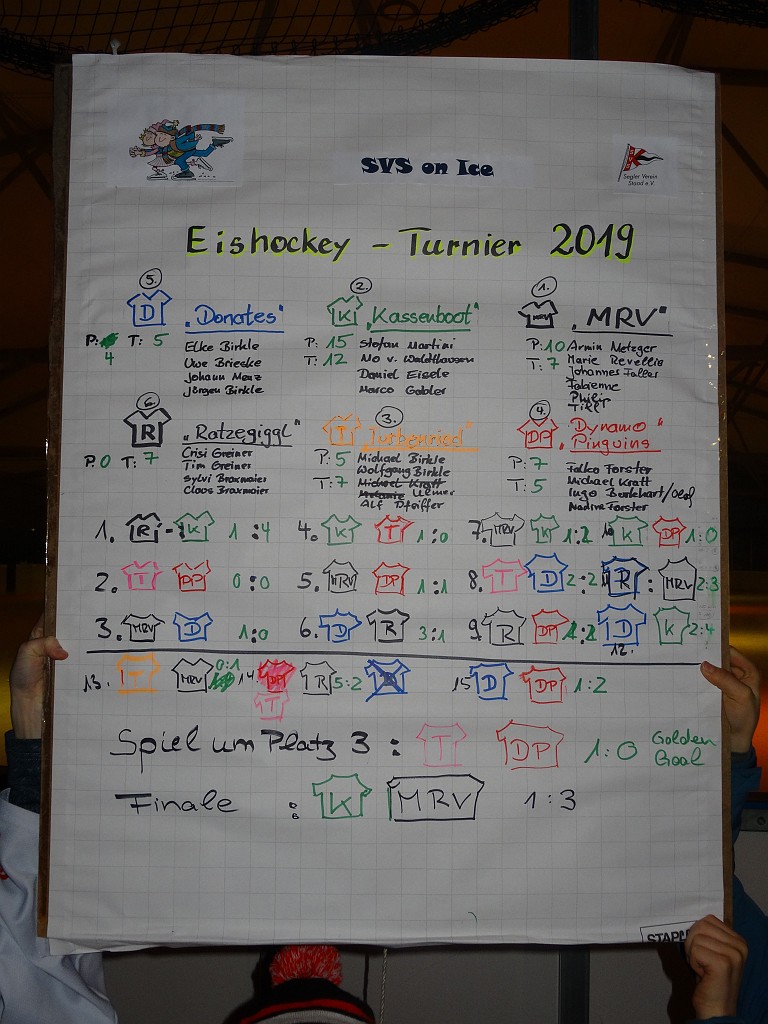 SVS on Ice
Segler Verein
Staad e.V.
Eishockey - Turnier 2019
5.
D "Donates"
P: 4 T: 5
Elke Birkle
Uwe Briecke
Johann Menz
Jürgen Birkle
2.
K "Kassenboot"
P: 15
T: 12
Stefan Martini
No v. Waldthausen
Daniel Eisele
Marco Gabler
1.
MRV "MRV"
P: 10
T: 7
Armin Netzger
Marie Revellio
Johannes Faller
Fabienne
Philip
Till
6.
R "Ratzegiggl"
P: 0 T: 7
Crisi Greiner
Tim Greiner
Sylvi Braxmaier
Claus Braxmaier
3.
T "Turbenried"
P: 5
T: 7
Michael Birkle
Wolfgang Birkle
Michael Kratt
Melanie Ulmer
Alf Pfeiffer
4.
DP "Dynamo Pinguins"
P: 7
T: 5
Falko Forster
Michael Kratt
Ingo Burkhart/Olaf
Nadine Forster
1. R - K 1:4 4. K T 1:0 7. MRV K 1:2 10 K DP 1:0
2. T DP 0:0 5. MRV DP 1:1 8. T D 2:2 R : MRV 2:3
3. MRV D 1:0 6. D R 3:1 9. R DP D K 2:4
12.
13. T MRV 0:1 14. DP R 5:2 15 D DP 1:2
T
Spiel um Platz 3 : T DP 1:0 Golden Goal
Finale : K MRV 1:3